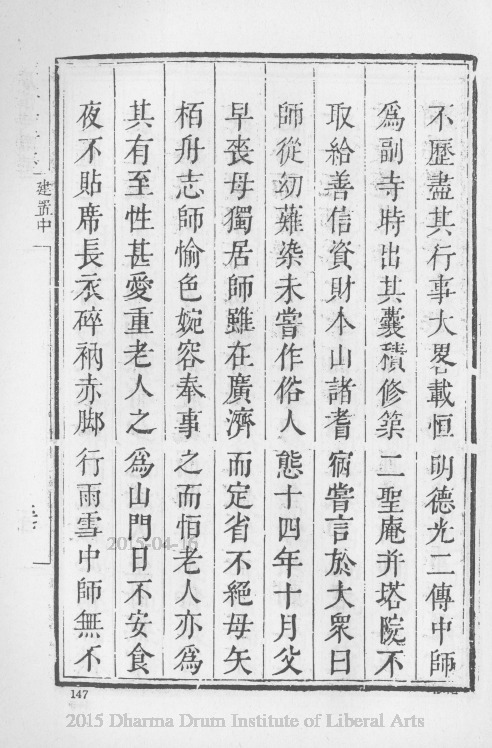 不歷盡其行事大畧載恒明德光二傳中師
爲副寺時出其囊積修築二聖庵并塔院不
取給善信資財本山諸耆宿嘗言於大衆曰
師從幼薙染未嘗作俗人態十四年十月父
早喪母獨居師雖在廣濟而定省不絕母矢
栢舟志師愉色婉容奉事之而恒老人亦爲
其有至性甚愛重老人之爲山門日不安食
夜不貼席長衣碎衲赤脚行雨雪中師無不
建置中
147
2015-04-16
2015 Dharma Drum Institute of Liberal Arts